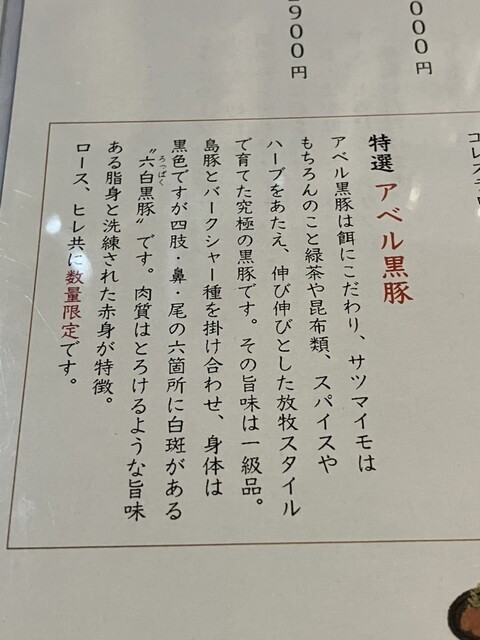 000円
900円
特選 アベル黒豚
アベル黒豚は餌にこだわり、サツマイモは
もちろんのこと緑茶や昆布類、スパイスや
ハーブをあたえ、伸び伸びとした放牧スタイル
で育てた究極の黒豚です。その旨味は一級品。
島豚とバークシャー種を掛け合わせ、身体は
黒色ですが四肢・鼻・尾の六箇所に白斑がある
“六白黒豚”です。肉質はとろけるような旨味
ろっぱく
ある脂身と洗練された赤身が特徴。
ロース、ヒレ共に数量限定です。